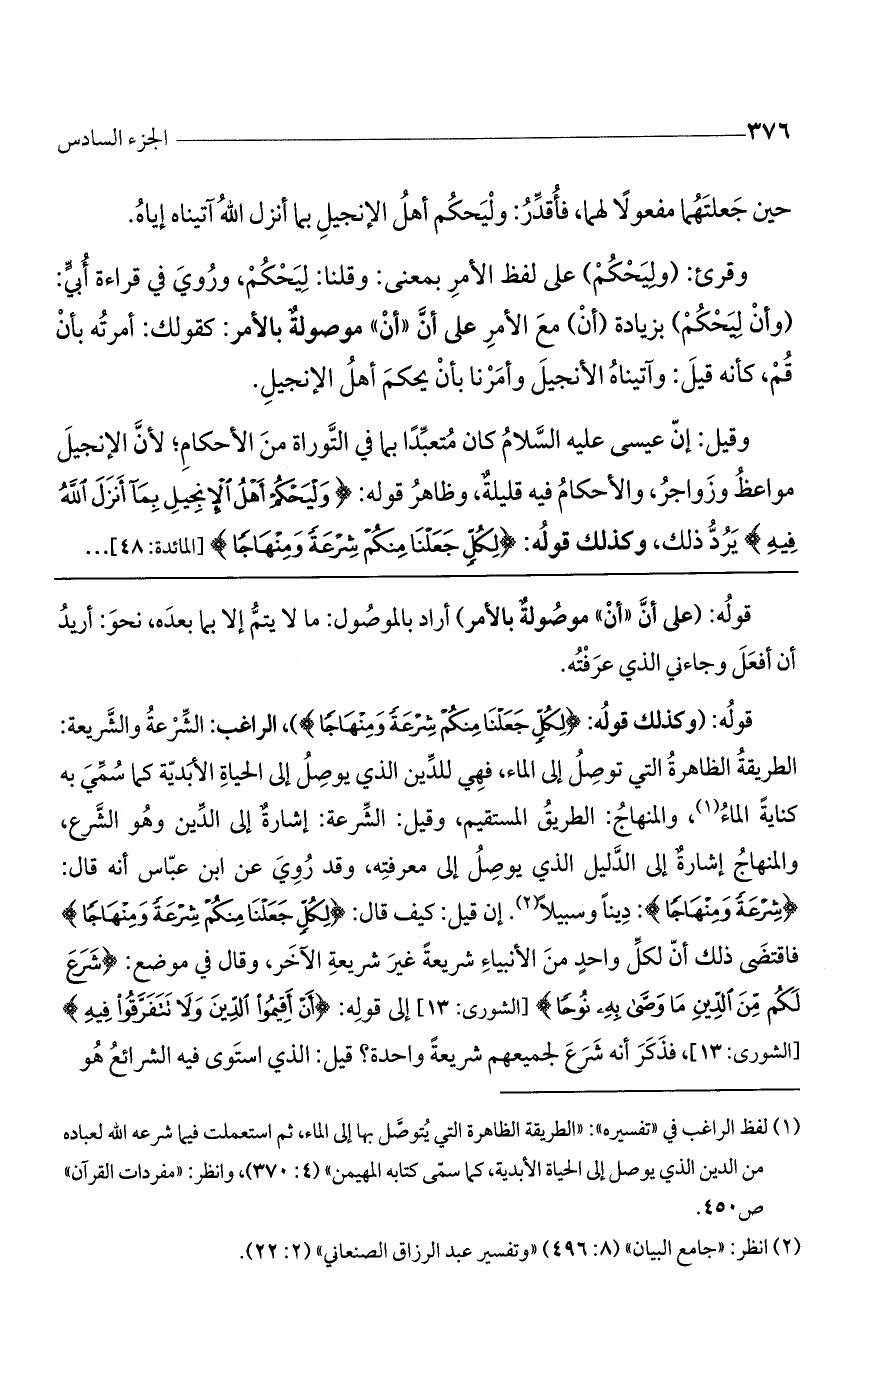 ٣٧٦ الجزء السادس
حين جَعلتَهُما مفعولًا لهما، فأُقدِّرُ: ولْيَحكُم أهلُ الإنجيلِ بما أنزل اللهُ آتيناه إياهُ.
وقرئ: (ولِيَحْكُمْ) على لفظ الأمرِ بمعنى: وقلنا: لِيَحْكُمْ، ورُويَ في قراءة أُبيٍّ:
(وأنْ لِيَحْكُمْ) بزيادة (أنْ) معَ الأمرِ على أنَّ «أنْ» موصولةٌ بالأمر: كقولك: أمرتُه بأنْ
قُمْ، كأنه قيلَ: وآتيناهُ الأنجيلَ وأمَرْنا بأنْ يحكمَ أهلُ الإنجيلِ.
وقيل: إنّ عيسى عليه السَّلامُ كان مُتعبِّدًا بما في التَّوراة منَ الأحكامِ؛ لأنَّ الإنجيلَ
مواعظُ وزَواجرُ، والأحكامُ فيه قليلةٌ، وظاهرُ قوله: ﴿وَلْيَحْكُمْ أَهْلُ ٱلْإِنجِيلِ بِمَآ أَنزَلَ ٱللَّهُ
فِيهِ﴾ يَرُدُّ ذلك، وكذلك قولُه: ﴿لِكُلٍّ جَعَلْنَا مِنكُمْ شِرْعَةً وَمِنْهَاجًا﴾ [المائدة: ٤٨]...
قولُه: (على أنَّ «أنْ» موصُولةٌ بالأمر) أراد بالموصُول: ما لا يتمُّ إلا بما بعدَه، نحوَ: أريدُ
أن أفعَلَ وجاءني الذي عرَفْتُه.
قولُه: (وكذلك قولُه: ﴿لِكُلٍّ جَعَلْنَا مِنكُمْ شِرْعَةً وَمِنْهَاجًا﴾)، الراغب: الشِّرْعةُ والشَّريعة:
الطريقةُ الظاهرةُ التي توصِلُ إلى الماء، فهِي للدِّين الذي يوصِلُ إلى الحياةِ الأبَديّة كما سُمِّيَ به
كنايةً الماءُ(١)، والمنهاجُ: الطريقُ المستقيم، وقيل: الشِّرعة: إشارةٌ إلى الدِّين وهُو الشَّرع،
والمنهاجُ إشارةٌ إلى الدَّليل الذي يوصِلُ إلى معرفتِه، وقد رُوِيَ عن ابن عبّاس أنه قال:
﴿شِرْعَةً وَمِنْهَاجًا﴾: دِيناً وسبيلاً(٢). إن قيل: كيف قال: ﴿لِكُلٍّ جَعَلْنَا مِنكُمْ شِرْعَةً وَمِنْهَاجًا﴾
فاقتضَى ذلك أنّ لكلِّ واحدٍ منَ الأنبياءِ شريعةً غيرَ شريعةِ الآخَر، وقال في موضع: ﴿شَرَعَ
لَكُم مِّنَ ٱلدِّينِ مَا وَصَّىٰ بِهِۦ نُوحًا﴾ [الشورى: ١٣] إلى قولِه: ﴿أَنْ أَقِيمُوا۟ ٱلدِّينَ وَلَا تَتَفَرَّقُوا۟ فِيهِ﴾
[الشورى: ١٣]، فذَكَرَ أنه شَرَعَ لجميعهم شريعةً واحدة؟ قيل: الذي استَوى فيه الشرائعُ هُو
(١) لفظ الراغب في «تفسيره»: «الطريقة الظاهرة التي يُتوصَّل بها إلى الماء، ثم استعملت فيما شرعه الله لعباده
من الدين الذي يوصل إلى الحياة الأبدية، كما سمّى كتابه المهيمن» (٤: ٣٧٠)، وانظر: «مفردات القرآن»
ص٤٥٠.
(٢) انظر: «جامع البيان» (٨: ٤٩٦) «وتفسير عبد الرزاق الصنعاني» (٢: ٢٢).